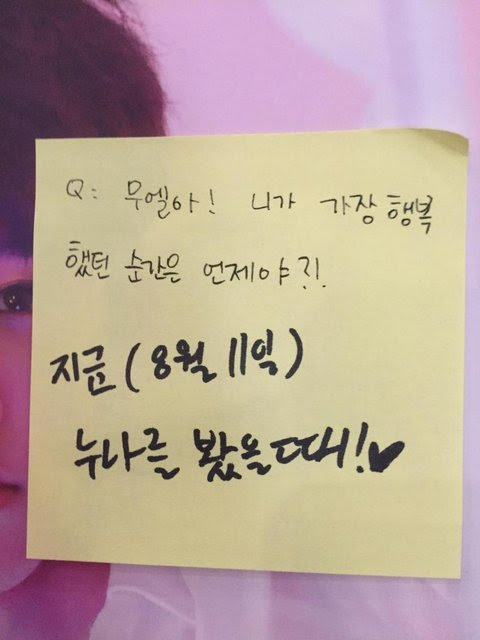 Q: 무엘아! 니가 가장 행복
했던 순간은 언제야?!
지금 (8월 11일)
누나를 봤을때!♥